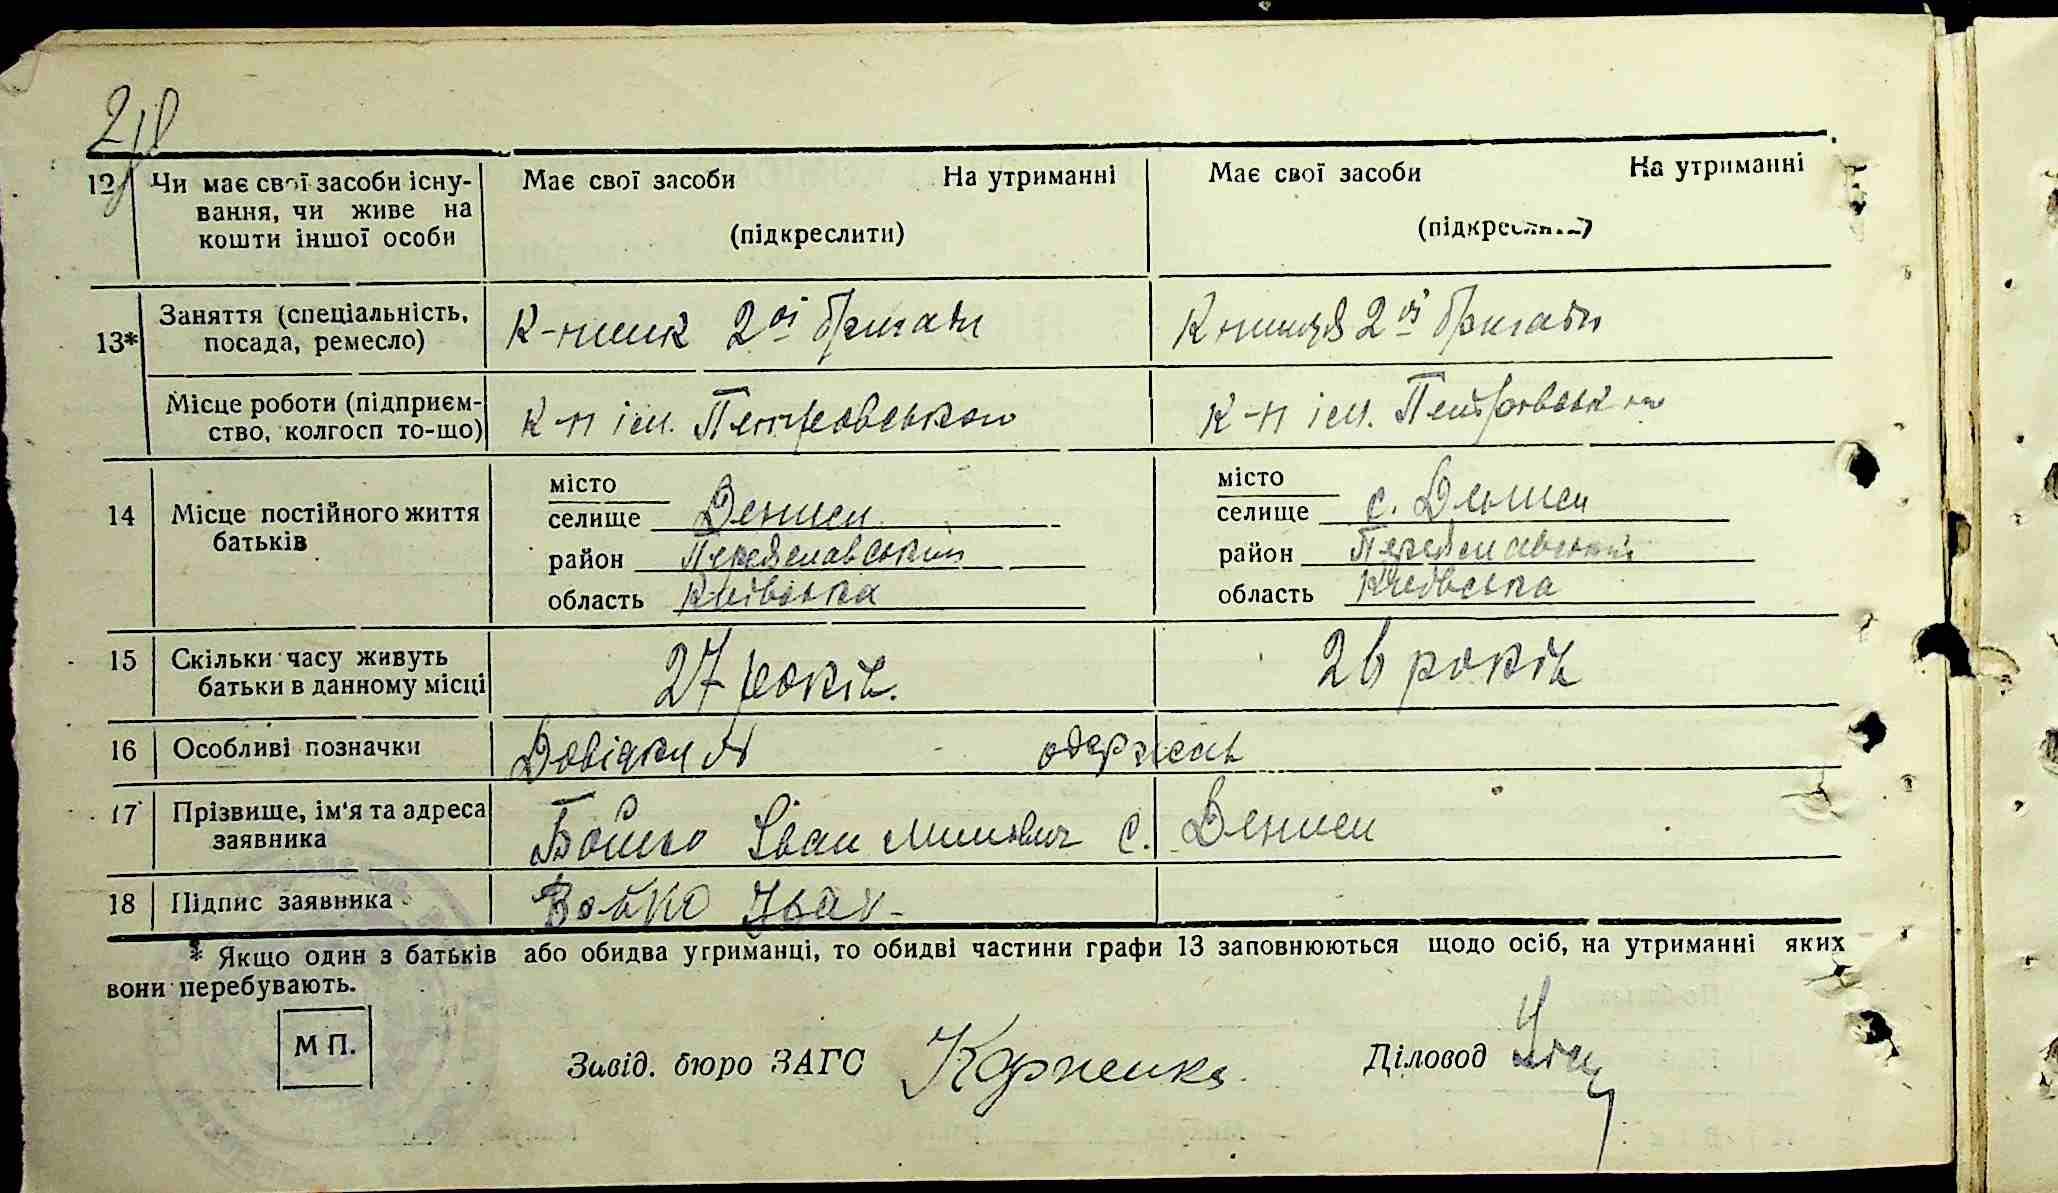 12 Чи має свої засоби існу- Має свої засоби На утриманні Має свої засоби На утриманні
вання, чи живе на
кошти іншої особи (підкреслити) (підкреслити)
13* Заняття (спеціальність, К-ник 2ої бригади К-ниця 2ої бригади
посада, ремесло)
Місце роботи (підприєм- к-п ім. Петровського к-п ім. Петровського
ство, колгосп то-що)
місто місто
14 Місце постійного життя селище Дениси селище с. Дениси
батьків район Переяславський район Переяславський
область Київська область Київська
15 Скільки часу живуть 27 років. 26 років
батьки в данному місці
16 Особливі позначки Довідки № одержав
17 Прізвище, ім'я та адреса Бойко Іван с. Дениси
заявника
18 Підпис заявника Бойко Іван
* Якщо один з батьків або обидва утриманці, то обидві частини графи 13 заповнюються щодо осіб, на утриманні яких
вони перебувають.
М П.
Завід. бюро ЗАГС Корненко Діловод